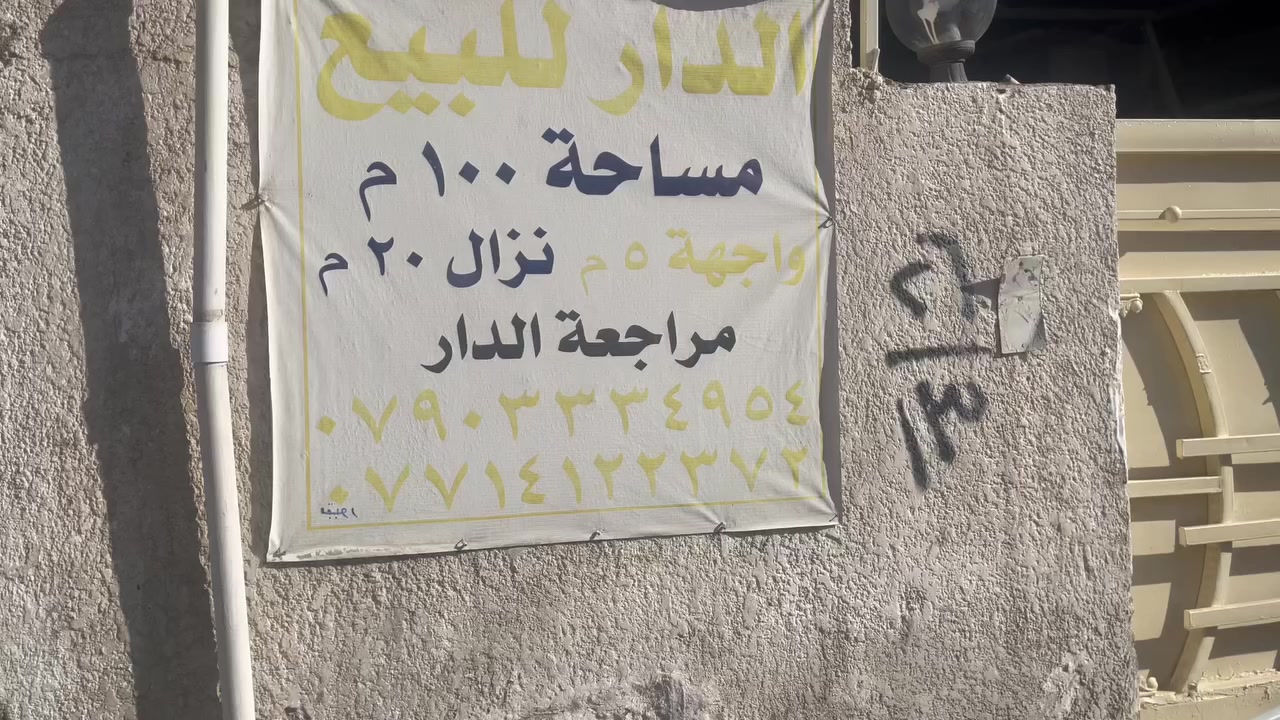 الدار للبيع
مساحة ١٠٠ م
واجهة ٥ م نزال ٢٠ م
مراجعة الدار
٠٧٩٠٣٣٣٤٩٥٤
٠٧٧١٤١٢٢٣٧٢
١٣